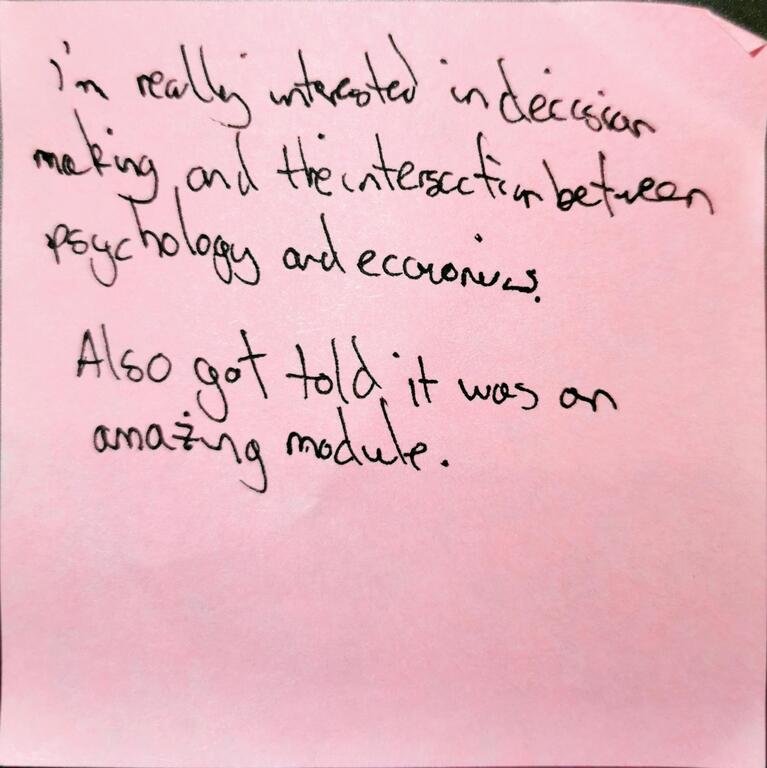 i'm really interested in decision
making and the intersection between
psychology and economics.
Also got told it was an
amazing module.